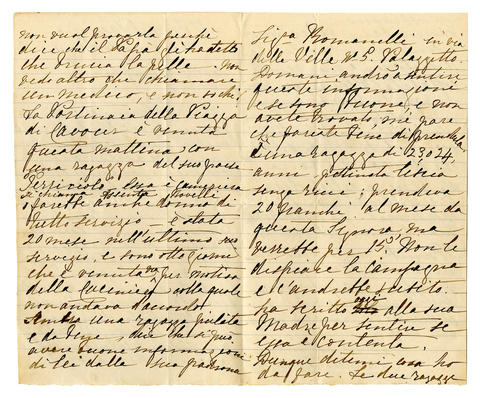 non vuol provarla perché
dice che il Papa gli ha detto
che brucia la pelle. non
vedo altro che chiamare
un medico, e non so chi.
La Portinaia della Piazza
di Cavour è venuta
questa mattina con
una ragazza del suo paese
si chiama Assunta
farebbe anche donna di
tutto servizio è stata
20 mese nell'ultimo suo
servizio, e sono otto giorni
che è venuta via per motivo
della Cuciniera colla quale
non andava daccordo
Sembra una ragazza pulita
e da bene, dice che si può
avere buone informazioni
di lei dalla sua padrona
Sigra Romanelli in via
delle Ville No 5. Palazzetto.
Domani andrò a sentire
queste informazioni
e se sono buone, e non
avete trovato, mi pare
che fareste bene di prenderla
È una ragazza di 23 o 24
anni pettinata liscia
senza ricci; prendeva
20 franchi al mese da
questa Signora ma
verrebbe per 15. Non le
dispiace la Campagna
e c'andrebbe subito.
ha scritto oggi alla sua
Madre per sentire se
essa è contenta.
Dunque ditemi cosa ho
da fare. Le due ragazze